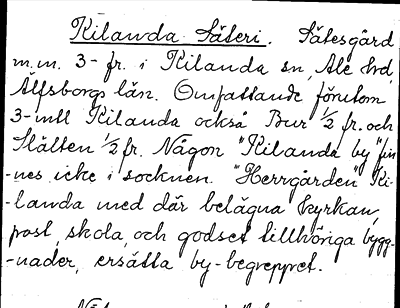 Kilanda Säteri. Sätesgård
m.m. 3- fr. i Kilanda sn, Ale hd,
Älfsborgs län. Omfattande förutom
3-mtl Kilanda också Bur 1/2 fr. och
Slätten 1/2 fr. Någon "Kilanda by" fin-
-nes icke i socknen. "Herrgården" Ki-
-landa med där belägna kyrkan,
post, skola, och godset tillhöriga bygg-
-nader, ersätta by-begreppet.